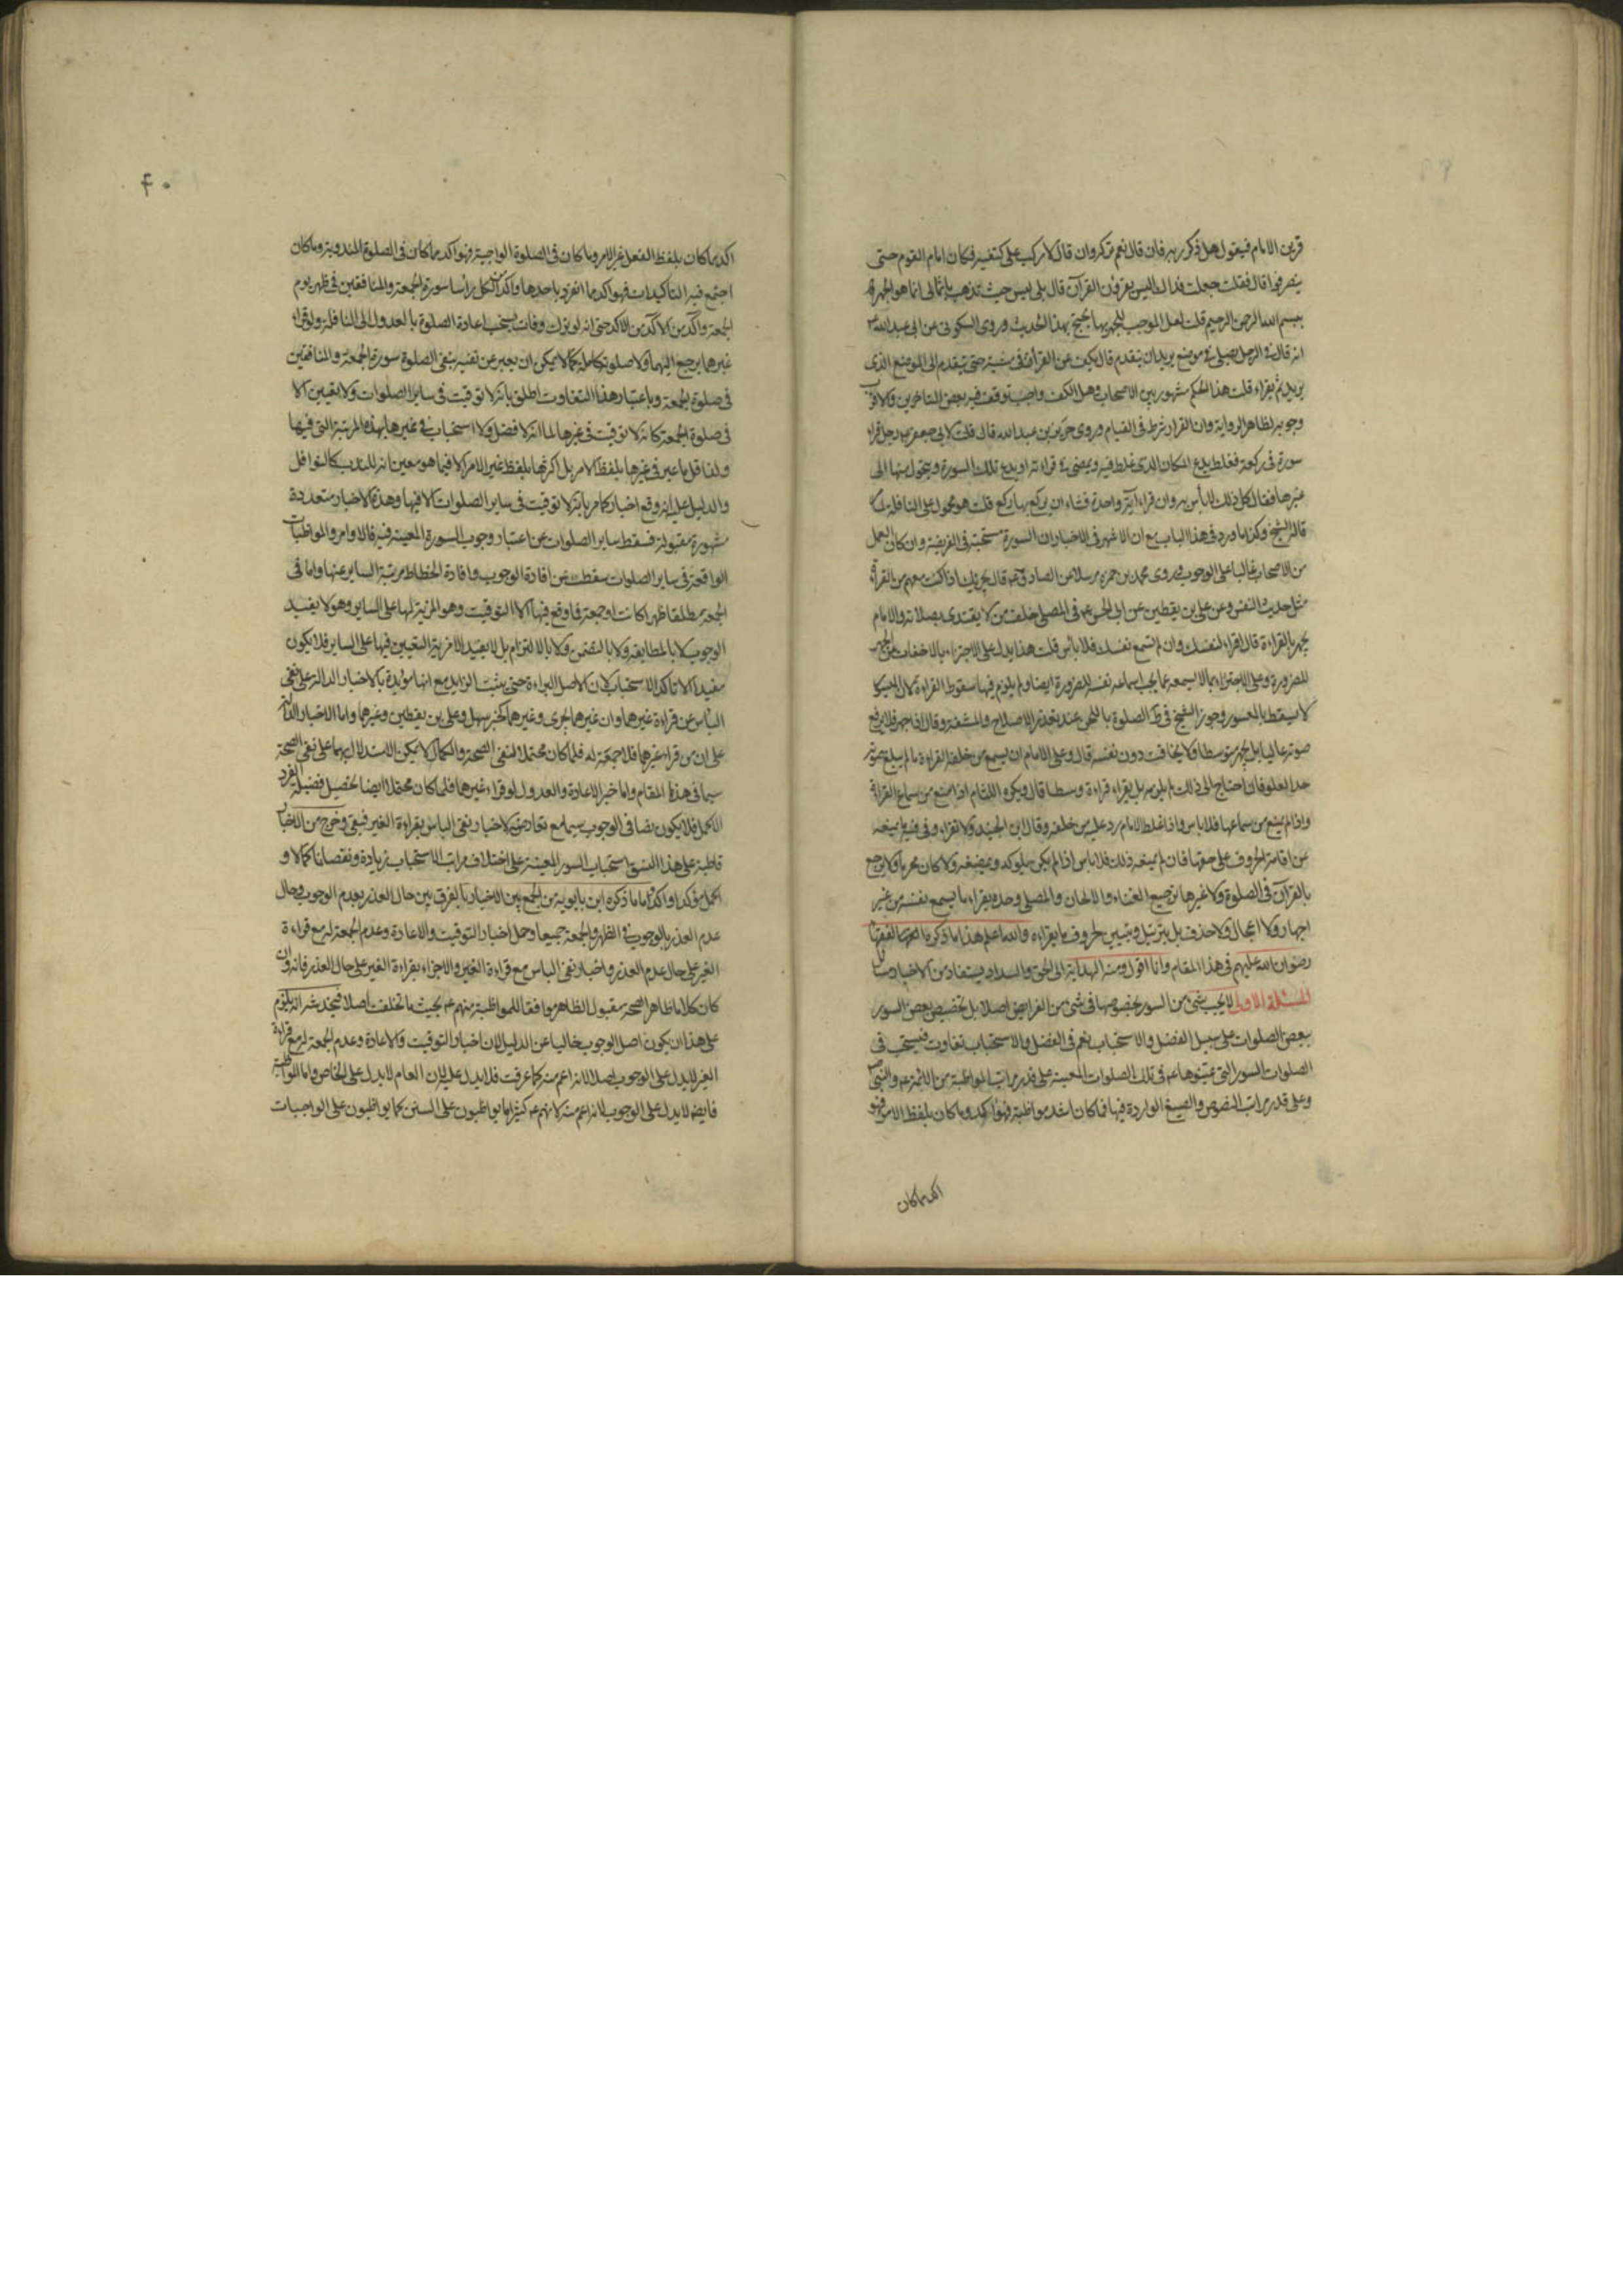 قرين الامام فيقول هل ذكر ربه فان قال نعم تركه وان قال لا ركب على كتفيه فكان امام القوم حتى
ينصرفوا قال فقلت جعلت فداك اليس يقرؤن القرآن قال بلى ليس حيث تذهب يا ثمالى انما هو الجهر
ببسم الله الرحمن الرحيم قلت لعل الموجب للجهر بها يحتج بهذا الحديث وروى السكونى عن ابى عبد الله
انه قال فى الرجل يصلى فى موضع يريد ان يتقدم قال يكف عن القرأة فى مشيه حتى يتقدم الى الموضع الذى
يريد ثم يقراء قلت هذا الحكم مشهور بين الاصحاب وهل الكف واجب توقف فيه بعض المتاخرين والاقرب
وجوبه لظاهر الرواية وان القرار شرط فى القيام وروى حريز بن عبد الله قال قلت لابى جعفر رجل قراء
سورة فى ركعة فغلط يدع المكان الذى غلط فيه ويمضى فى قراءته او يدع تلك السورة ويتحول منها الى
غيرها فقال كل ذلك لا بأس به وان قراء اية واحدة فشاء ان يركع بها ركع قلت هو محمول على النافلة كما
قاله الشيخ وكذا ما ورد فى هذا الباب مع ان الاشهر فى الاخبار ان السورة مستحبة فى الفريضة وان كان العمل
من الاصحاب غالبا على الوجوب وروى محمد بن حمزه مرسلا عن الصادق ع قال يجزيك اذا كنت معهم من القرأة
مثل حديث النفس وعن على بن يقطين عن ابى الحسن ع فى المصلى خلف من لا يقتدى بصلاته والامام
يجهر بالقراءة قال اقراء لنفسك وان لم تسمع نفسك فلا بأس قلت هذا يدل على الاجتزاء بالاخفات عن الجهر
للضرورة وعلى الاجتزاء بما لا يسمعه عما يجب اسماعه نفسه للضرورة ايضا ولم يلزم فيها سقوط القراءة لان الميسور
لا يسقط بالمعسور وجوز الشيخ فى ط الصلوة باللحن عند تعذر الاصلاح والمشقة وقال اذا جهر فلا يرفع
صوته عاليا بل يجهر متوسطا ولا يخافت دون نفسه قال وعلى الامام ان يسمع من خلفه القراءة ما لم يبلغ صوته
حد العلو فان احتاج الى ذلك لم يلزمه بل يقراء قراءة وسطا قال ويكره اللثام اذا منع من سماع القرأة
واذا لم يمنع من سماعها فلا باس واذا غلط الامام رد عليه من خلفه وقال ابن الجنيد ولا تقراء وفى فيه ما يمنعه
عن اقامة الحروف على حقها فان لم يمنعه ذلك فلا باس اذا لم يكن يلوكه ويمضغه ولا كان محرما ولا يرجع
بالقرآن فى الصلوة ولا غيرها ترجيع الغناء والالحان والمصلى وحده يقراء ما يسمع نفسه من غير
اجهار ولا اعجال ولا حذف بل بترتيل وتبيين لحروف ما يقراءه والله اعلم هذا ما ذكره
رضوان الله عليهم فى هذا المقام وانا اقول ومنه الهداية الى الحق والسداد يستفاد من الاخبار
المسئلة الاولى لا يجب شئ من السور بخصوصها فى شئ من الفرايض اصلا بل تخصيص بعض السور
ببعض الصلوات على سبيل الفضل والاستحباب نعم فى الفضل والاستحباب تفاوت فيستحب فى
الصلوات السور التى عينوها ع فى تلك الصلوات المعينة على قدر مراتب المواظبة من الائمة ع والنبى ص
وعلى قدر مراتب النصوص والصيغ الواردة فيها فما كان اشد مواظبة فهو اكد وما كان بلفظ الامر فهو
اكد مما كان
٤٠
اكد مما كان بلفظ الفعل غير الامر وما كان فى الصلوة الواجبة فهو اكد مما كان فى الصلوة المندوبة وما كان
اجتمع فيه التأكيدات فهو اكد مما انفرد باحدها واكد الكل راسا سورة الجمعة والمنافقين فى ظهر يوم
الجمعة واكد من الاكد من الاكد حتى انه لو ترك وفات يستحب اعادة الصلوة بالعدول الى النافلة ولو قراء
غيرهما يرجع اليهما ولا صلوة كاملة كما لا يمكن ان يعبر عن نفيه بنفى الصلوة سورة الجمعة والمنافقين
فى صلوة الجمعة وباعتبار هذا التفاوت اطلق بانه لا توقيت فى ساير الصلوات ولا تعيين الا
فى صلوة الجمعة كانه لا توقيت فى غيرها لما انه لا فضل ولا استحباب فى غيرها بهذه المرتبة التى فيها
ولذا قل ما عبر فى غيرها بلفظ الامر بل اكثرها بلفظ غير الامر الا فيما هو معين انه للندب كالنوافل
والدليل عليه انه وقع اخبار كما مر بانه لا توقيت فى ساير الصلوات الا فيها وهذه الاخبار متعددة
مشهورة مقبولة فسقط ساير الصلوات عن اعتبار وجوب السورة المعينة فيه فالاوامر والمواظبات
الواقعة فى ساير الصلوات سقطت عن افادة الوجوب وافادة انحطاط مرتبة الساير عنها واما فى
الجمعة مطلقا ظهرا كانت او جمعة فما وقع فيها الا التوقيت وهو المزية لها على الساير وهو لا يفيد
الوجوب لا بالمطابقة ولا بالتضمن ولا بالالتزام بل لا يفيد الا مزية التعيين فيها على الساير فلا يكون
مفيدا الا تاكد الاستحباب لان الاصل البراءة حتى يثبت الزايد مع انها مؤيدة بالاخبار الدالة على نفى
البأس عن قراءة غيرهما وان غيرهما يجرى وغيرهما كخبر سهل وعلى بن يقطين وغيرهما واما الاخبار الدالة
على ان من قراء غيرهما فلا جمعة له فلما كان محتملا لنفى الصحة والكمال لا يمكن الاستدلال بهما على نفى الصحة
سيما فى هذا المقام واما خبر الاعادة والعدول لو قراء غيرهما فلما كان محتملا ايضا لتحصيل فضيلة الفرد
الاكمل فلا يكون نصا فى الوجوب سيما مع تعارضه لاخبار نفى الباس بقراءة الغير فبقى وخرج من الاخبار
قاطبة على هذا النسق استحباب السور المعينة على اختلاف مراتب الاستحباب زيادة ونقصانا كمالا و
اكمل مؤكدا واكد واما ما ذكره ابن بابويه من الجمع بين الاخبار بالفرق بين حال العذر بعدم الوجوب وحال
عدم العذر بالوجوب فى الظهر والجمعة جميعا وحمل اخبار التوقيت والاعادة وعدم الجمعة له مع قراءة
الغير على حال عدم العذر واخبار نفى الباس مع قراءة الغير والاجزاء بقراءة الغير على حال العذر فانه وان
كان كلاما ظاهر الصحة مقبول الظاهر موافقا للمواظبة منهم ع بحيث ما تخلفت اصلا فيخدشه انه يلزم
على هذا ان يكون اصل الوجوب خاليا عن الدليل لان اخبار التوقيت والاعادة وعدم الجمعة له مع قراءة
الغير لا يدل على الوجوب اصلا لانه اعم منه كما عرفت فلا يدل عليه لان العام لا يدل على الخاص واما المواظبة
فايضا لا يدل على الوجوب لانه اعم منه لانهم ع كثيرا ما يواظبون على السنن كما يواظبون على الواجبات